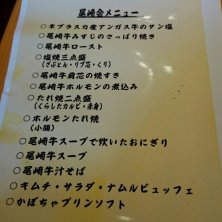 尾崎会メニュー
○ネブラスカ産アンガス牛のタン塩
○尾崎牛みすじのさっぱり焼き
○尾崎牛ロースト
○塩焼三点盛
(ざぶとん・リブ芯・くり)
○尾崎牛肩芯の焼すき
○尾崎牛ホルモンの煮込み
○たれ焼二点盛
(くらしたカルビ・赤身)
○ホルモンたれ焼
(小腸)
○尾崎牛スープで炊いたおにぎり
○尾崎牛スープ
○尾崎牛汁そば
○キムチ・サラダ・ナムルビュッフェ
○かぼちゃプリンソフト